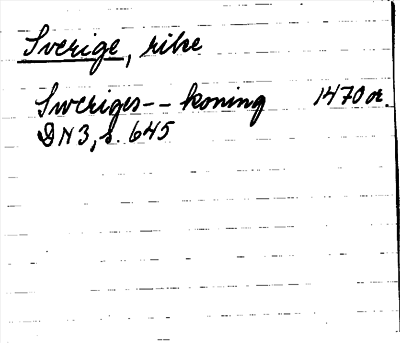 Sverige, rike
Sweriges -- koning 1470 or.
DN 3, s. 645